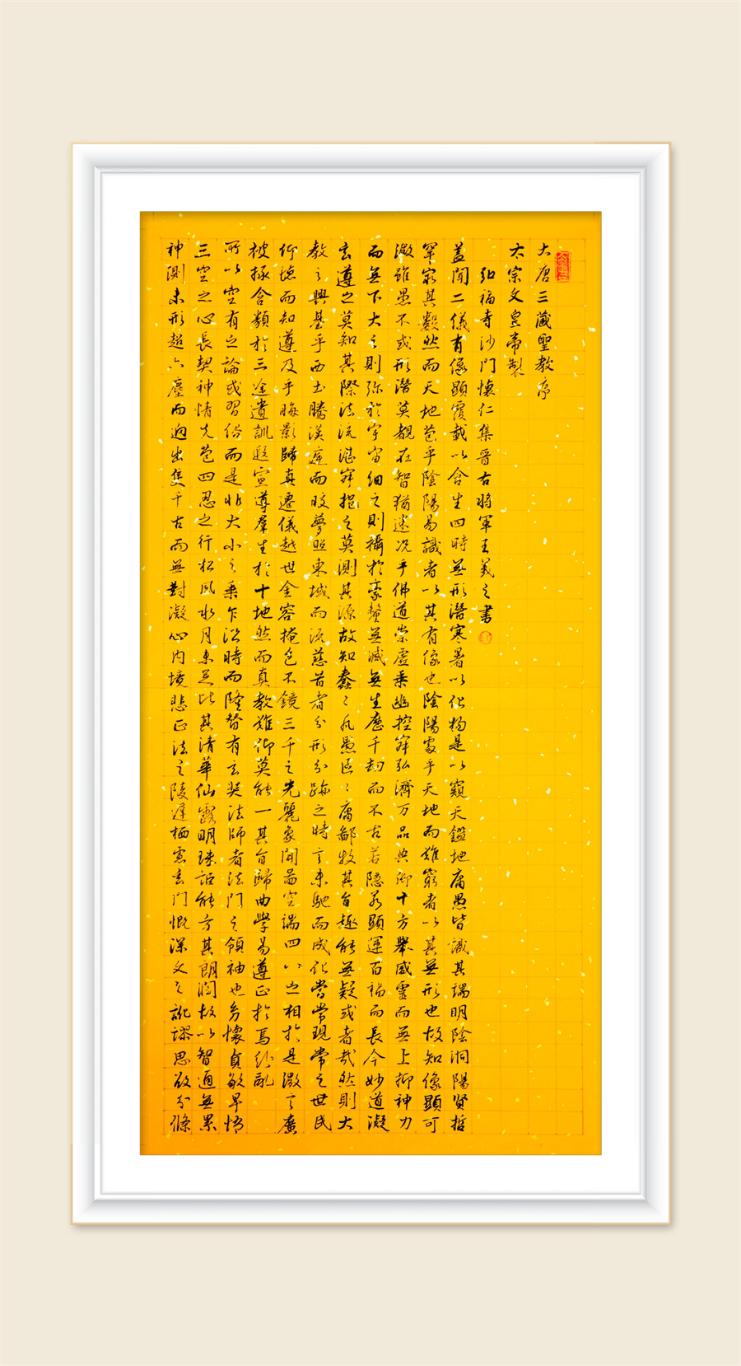 大唐三藏聖教序
太宗文皇帝製
弘福寺沙門懷仁集晉右將軍王羲之書
蓋聞二儀有像顯覆載以含生四時無形潛寒暑以化物是以窺天鑑地庸愚皆識其端明陰洞陽賢哲
罕窮其數然而天地苞乎陰陽易識者以其有像也陰陽處乎天地而難窮者以其無形也故知像顯可
徵雖愚不惑形潛莫覩在智猶迷況乎佛道崇虛乘幽控寂弘濟万品典御十方舉威靈而無上抑神力
而無下大之則彌於宇宙細之則攝於豪釐無滅無生歷千劫而不古若隱若顯運百福而長今妙道凝
玄遵之莫知其際法流湛寂挹之莫測其源故知蠢々凡愚區々庸鄙投其旨趣能無疑惑者哉然則大
教之興基乎西土騰漢庭而皎夢照東域而流慈昔者分形分跡之時言未馳而成化當常現常之世民
仰德而知遵及乎晦影歸真遷儀越世金容掩色不鏡三千之光麗象開圖空端四八之相於是微言廣
被拯含類於三途遺訓遐宣導羣生於十地然而真教難仰莫能一其旨歸曲學易遵正於焉紛糺
所以空有之論或習俗而是非大小之乘乍沿時而隆替有玄奘法師者法門之領袖也幼懷貞敏早悟
三空之心長契神情先苞四忍之行松風水月未足比其清華仙露明珠詎能方其朗潤故以智通無累
神測未形超六塵而迥出隻千古而無對凝心內境悲正法之陵遲栖慮玄門慨深文之訛謬思欲分條